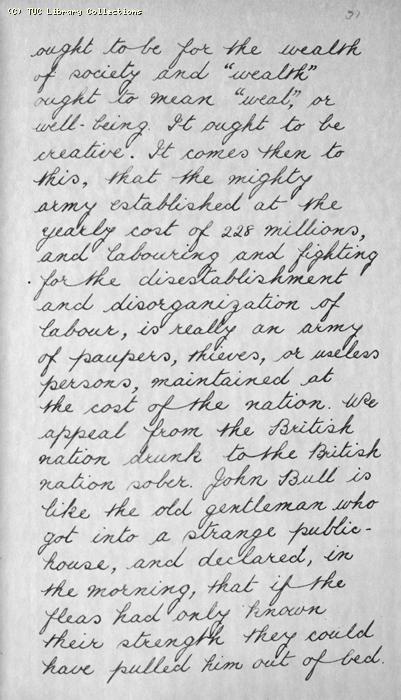 (C) TUC Library Collections
ought to be for the wealth
of society and "wealth"
ought to mean "weal", or
well-being. It ought to be
creative. It comes then to
this, that the mighty
army established at the
yearly cost of 228 millions,
and labouring and fighting
for the disestablishment
and disorganization of
labour, is really an army
of paupers, thieves, or useless
persons, maintained at
the cost of the nation. We
appeal from the British
nation drunk to the British
nation sober. John Bull is
like the old gentleman who
got into a strange public-
house, and declared, in
the morning, that if the
fleas had only known
their strength they could
have pulled him out of bed.